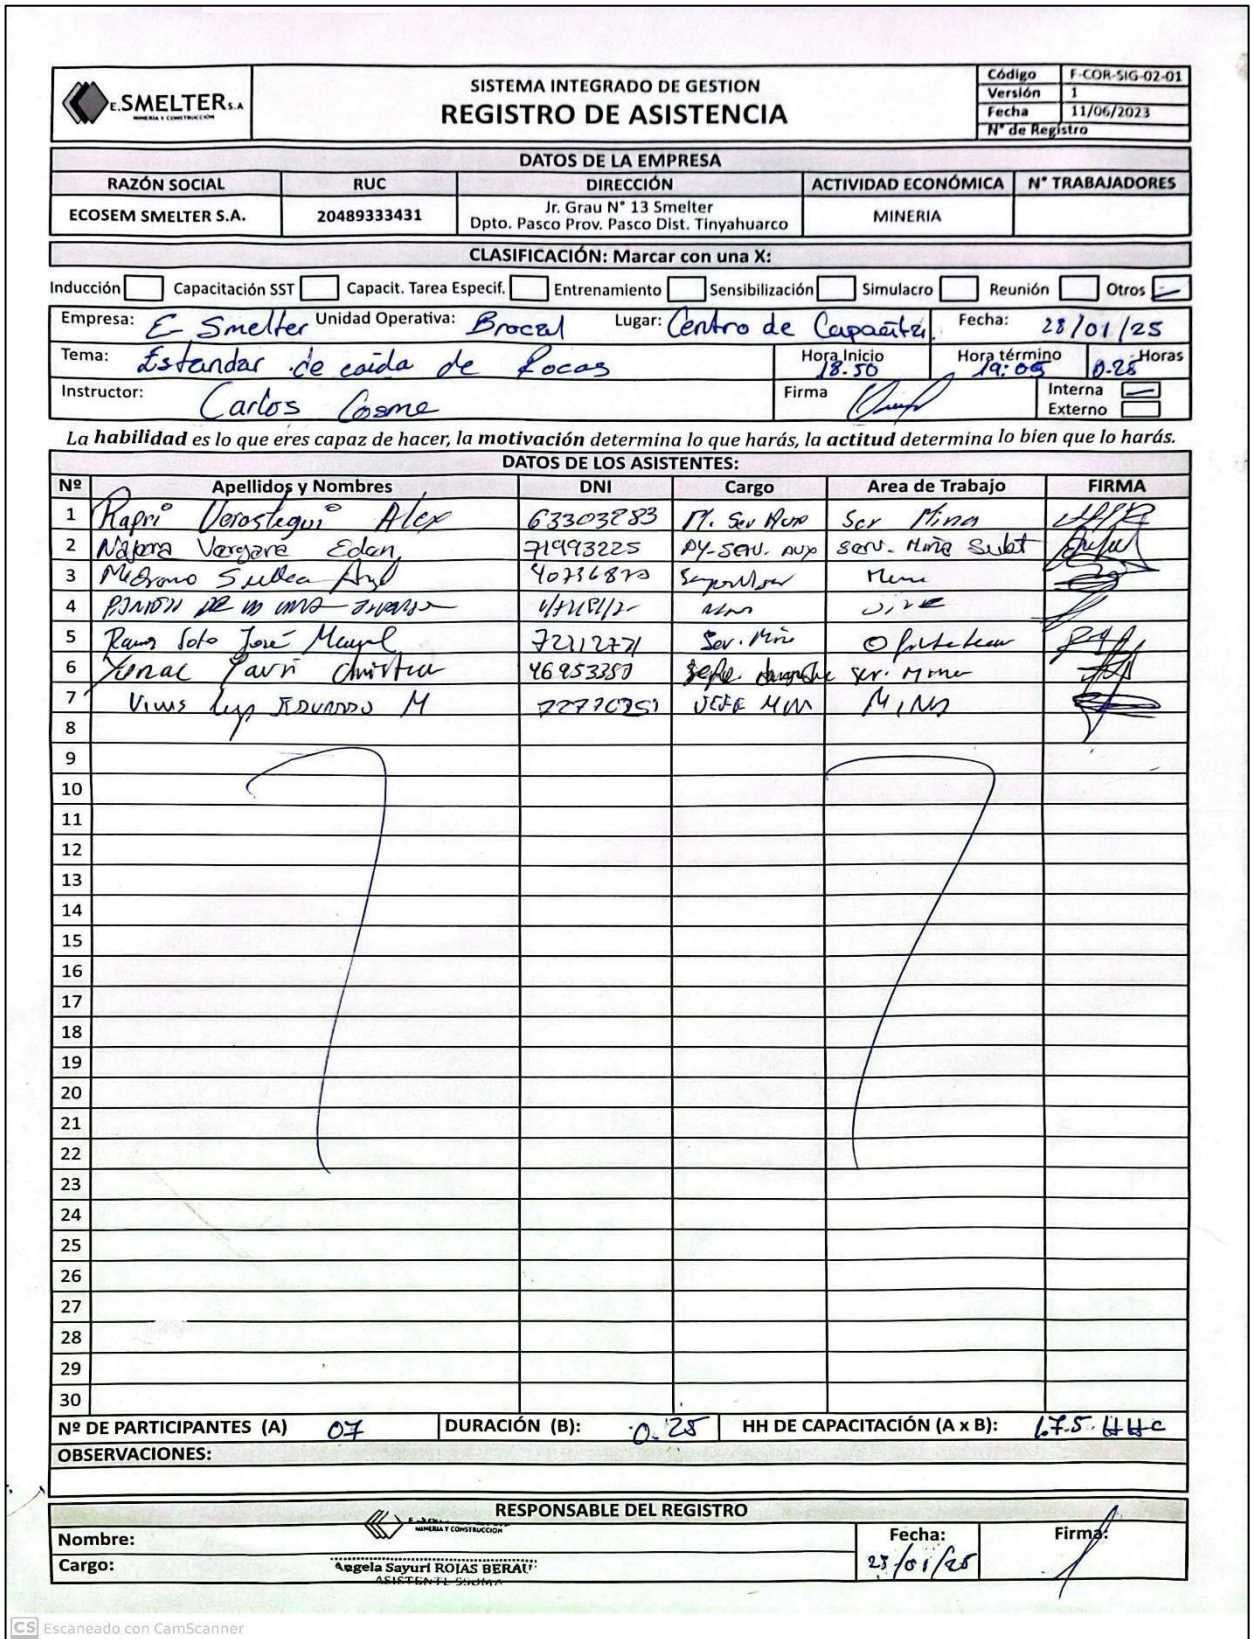 E.SMELTER S.A
MINERIA Y CONSTRUCCIÓN
SISTEMA INTEGRADO DE GESTION
REGISTRO DE ASISTENCIA
Código F-COR-SIG-02-01
Versión 1
Fecha 11/06/2023
N° de Registro
DATOS DE LA EMPRESA
RAZÓN SOCIAL RUC DIRECCIÓN ACTIVIDAD ECONÓMICA N° TRABAJADORES
ECOSEM SMELTER S.A. 20489333431 Jr. Grau N° 13 Smelter MINERIA
Dpto. Pasco Prov. Pasco Dist. Tinyahuarco
CLASIFICACIÓN: Marcar con una X:
Inducción Capacitación SST Capacit. Tarea Especif. Entrenamiento Sensibilización Simulacro Reunión Otros
Empresa: E Smelter Unidad Operativa: Brocal Lugar: Centro de Fecha: 28/01/25
Tema: Estandar de caida de Rocas Hora Inicio 18:50 Hora término 19:05 0.25 Horas
Instructor: Carlos Cosme Firma Interna
Externo
La habilidad es lo que eres capaz de hacer, la motivación determina lo que harás, la actitud determina lo bien que lo harás.
DATOS DE LOS ASISTENTES:
Nº Apellidos y Nombres DNI Cargo Area de Trabajo FIRMA
1 Kapri Verostegui Alex 63303283 Ser Mina
2 Najera Vergara Edan 71993225 Serv. Mina Subt
3
4
5 Ramos Soto José 72112771
6 Ser. Mina
7 EDUARDO M MINA
8
9
10
11
12
13
14
15
16
17
18
19
20
21
22
23
24
25
26
27
28
29
30
Nº DE PARTICIPANTES (A) 07 DURACIÓN (B): 0.25 HH DE CAPACITACIÓN (A x B): 1.75 HHC
OBSERVACIONES:
RESPONSABLE DEL REGISTRO
MINERIA Y CONSTRUCCIÓN
Nombre: Fecha: Firma:
Cargo: Angela Sayuri ROJAS BERAU 28/01/25
ASISTENTE SSOMA
CS Escaneado con CamScanner